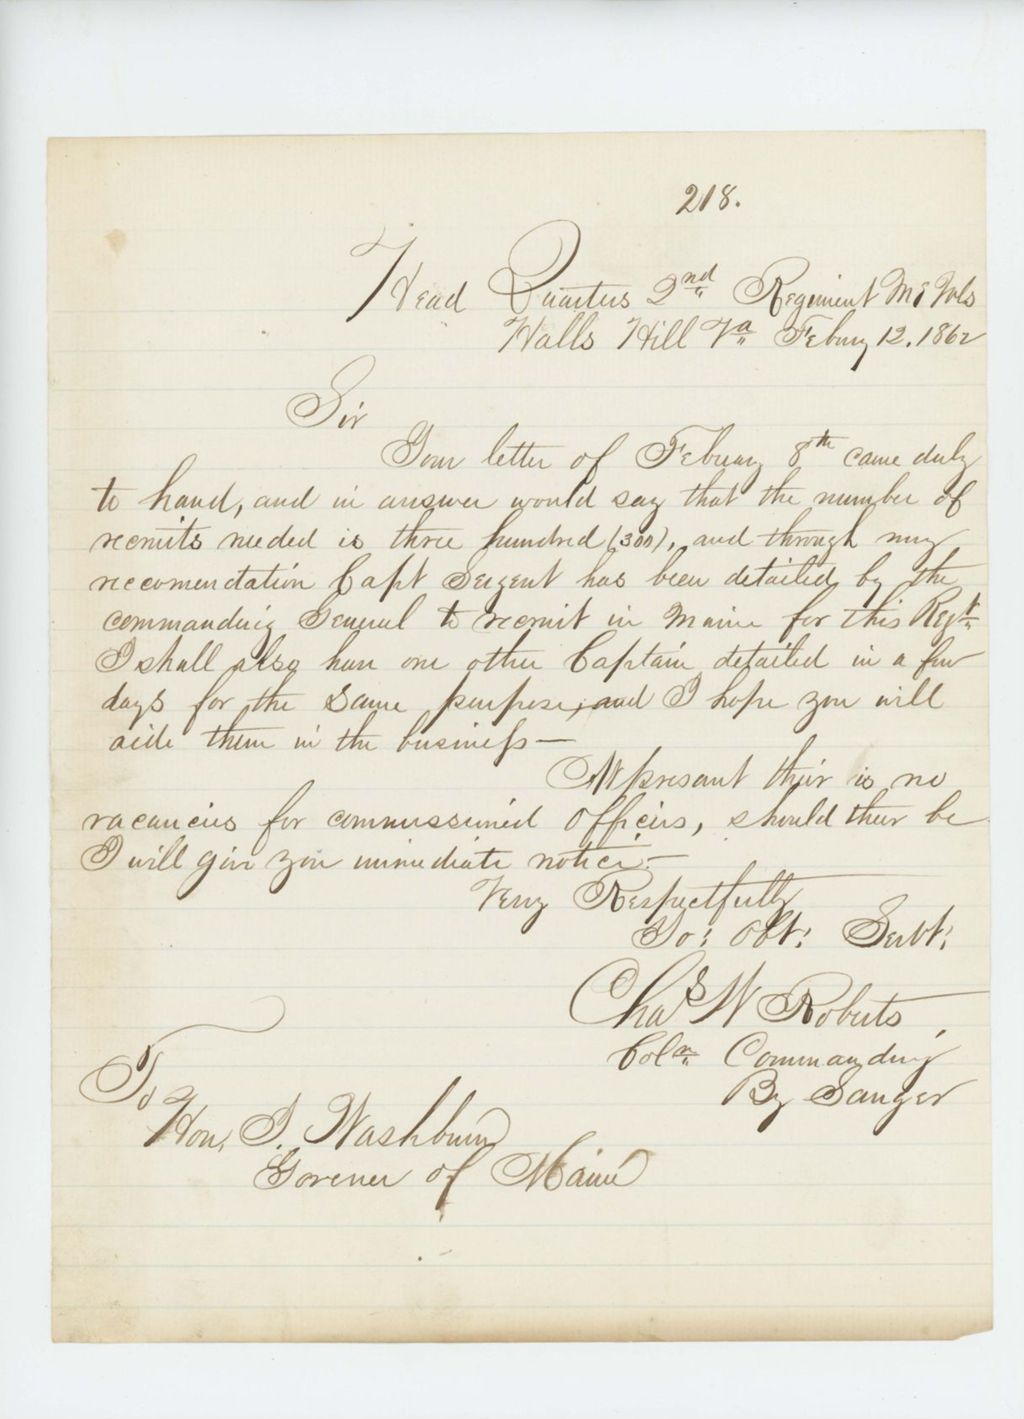 218.
Head Quarters 2nd Regiment Me Vols
Halls Hill Va Febury 12. 1862
Sir
Your letter of Februay 8th came duly
to hand, and in answer would say that the number of
recruits needed is three hundred (300), and through my
reccomendation Capt Sergent has been detailed by the
commanding General to recruit in Maine for this Regt.
I shall also have one other Captain detailed in a few
days for the same purpose, and I hope you will
aide them in the business—
At presant their is no
vacancies for commissioned officers, should their be
I will give you immediate notice.—
Very Respectfully
Yo: Obt: Servt:
Chas W Roberts
Coln Commanding
By Sanger
To
Hon, I. Washburn
Govener of Maine